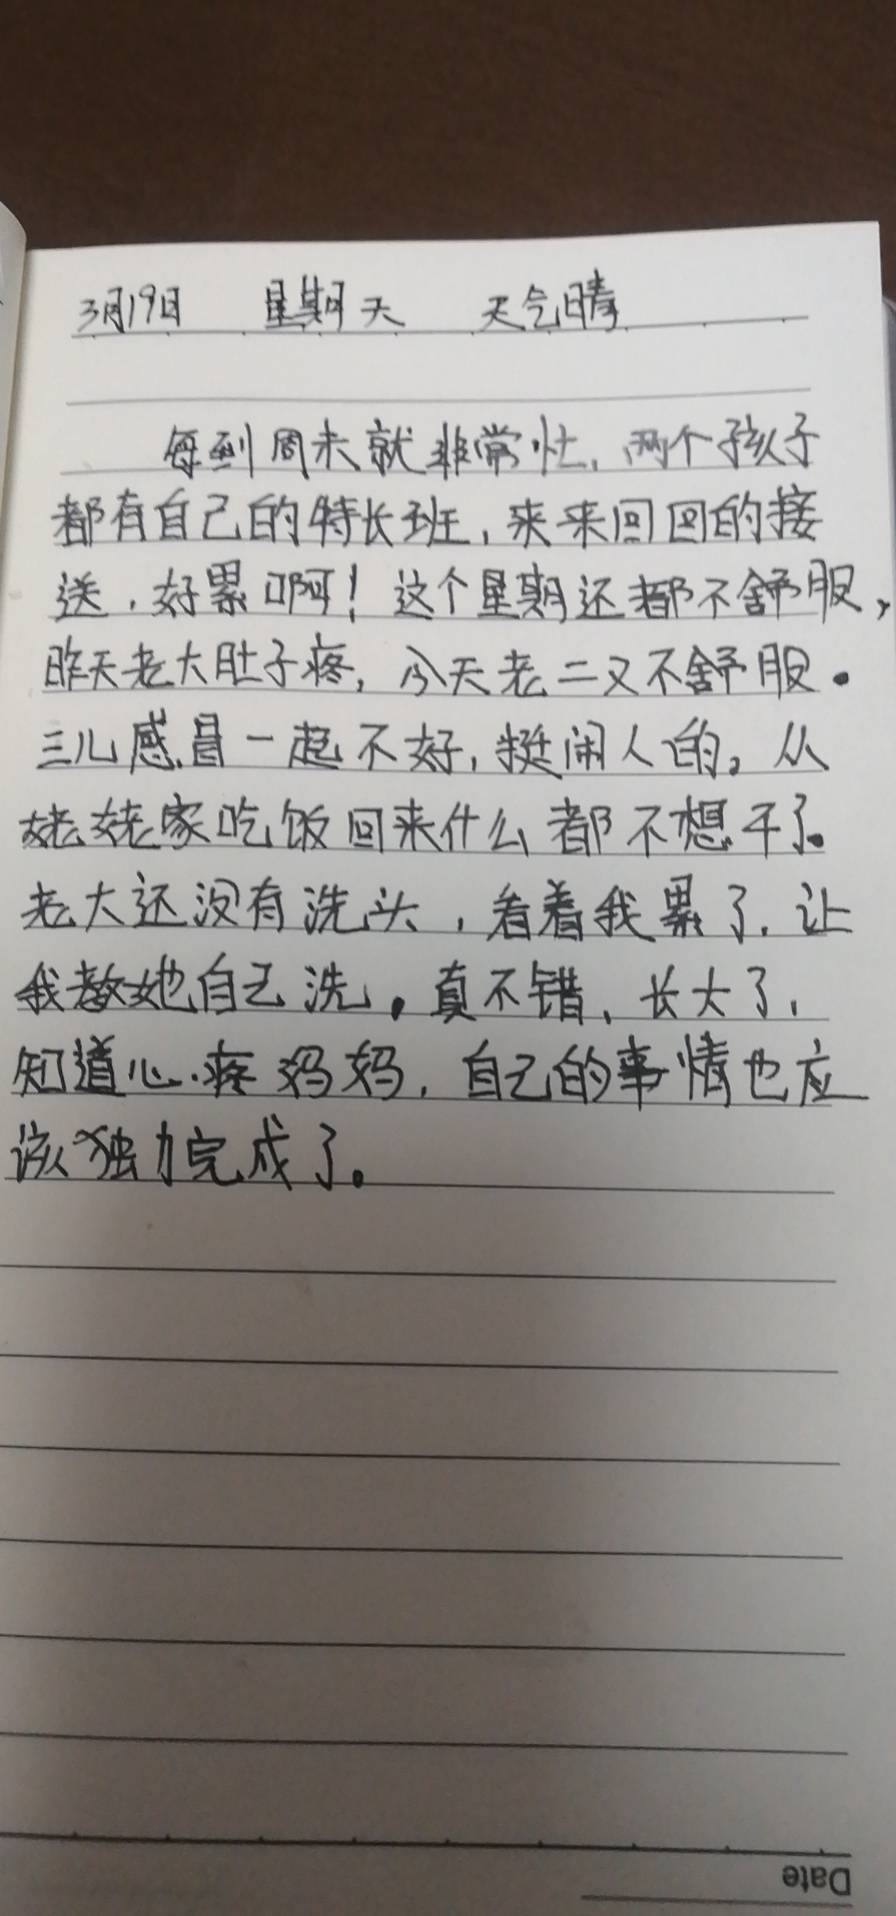 3月19日 星期天 天气晴
每到周末就非常忙,两个孩子
都有自己的特长班,来来回回的接
送,好累啊!这个星期还都不舒服,
昨天老大肚子疼,今天老二又不舒服。
三儿感冒一起不好,挺闹人的。从
姥姥家吃饭回来什么都不想干了。
老大还没有洗头,看着我累了,让
我教她自己洗。真不错,长大了,
知道心疼妈妈,自己的事情也应
该独力完成了。
Date